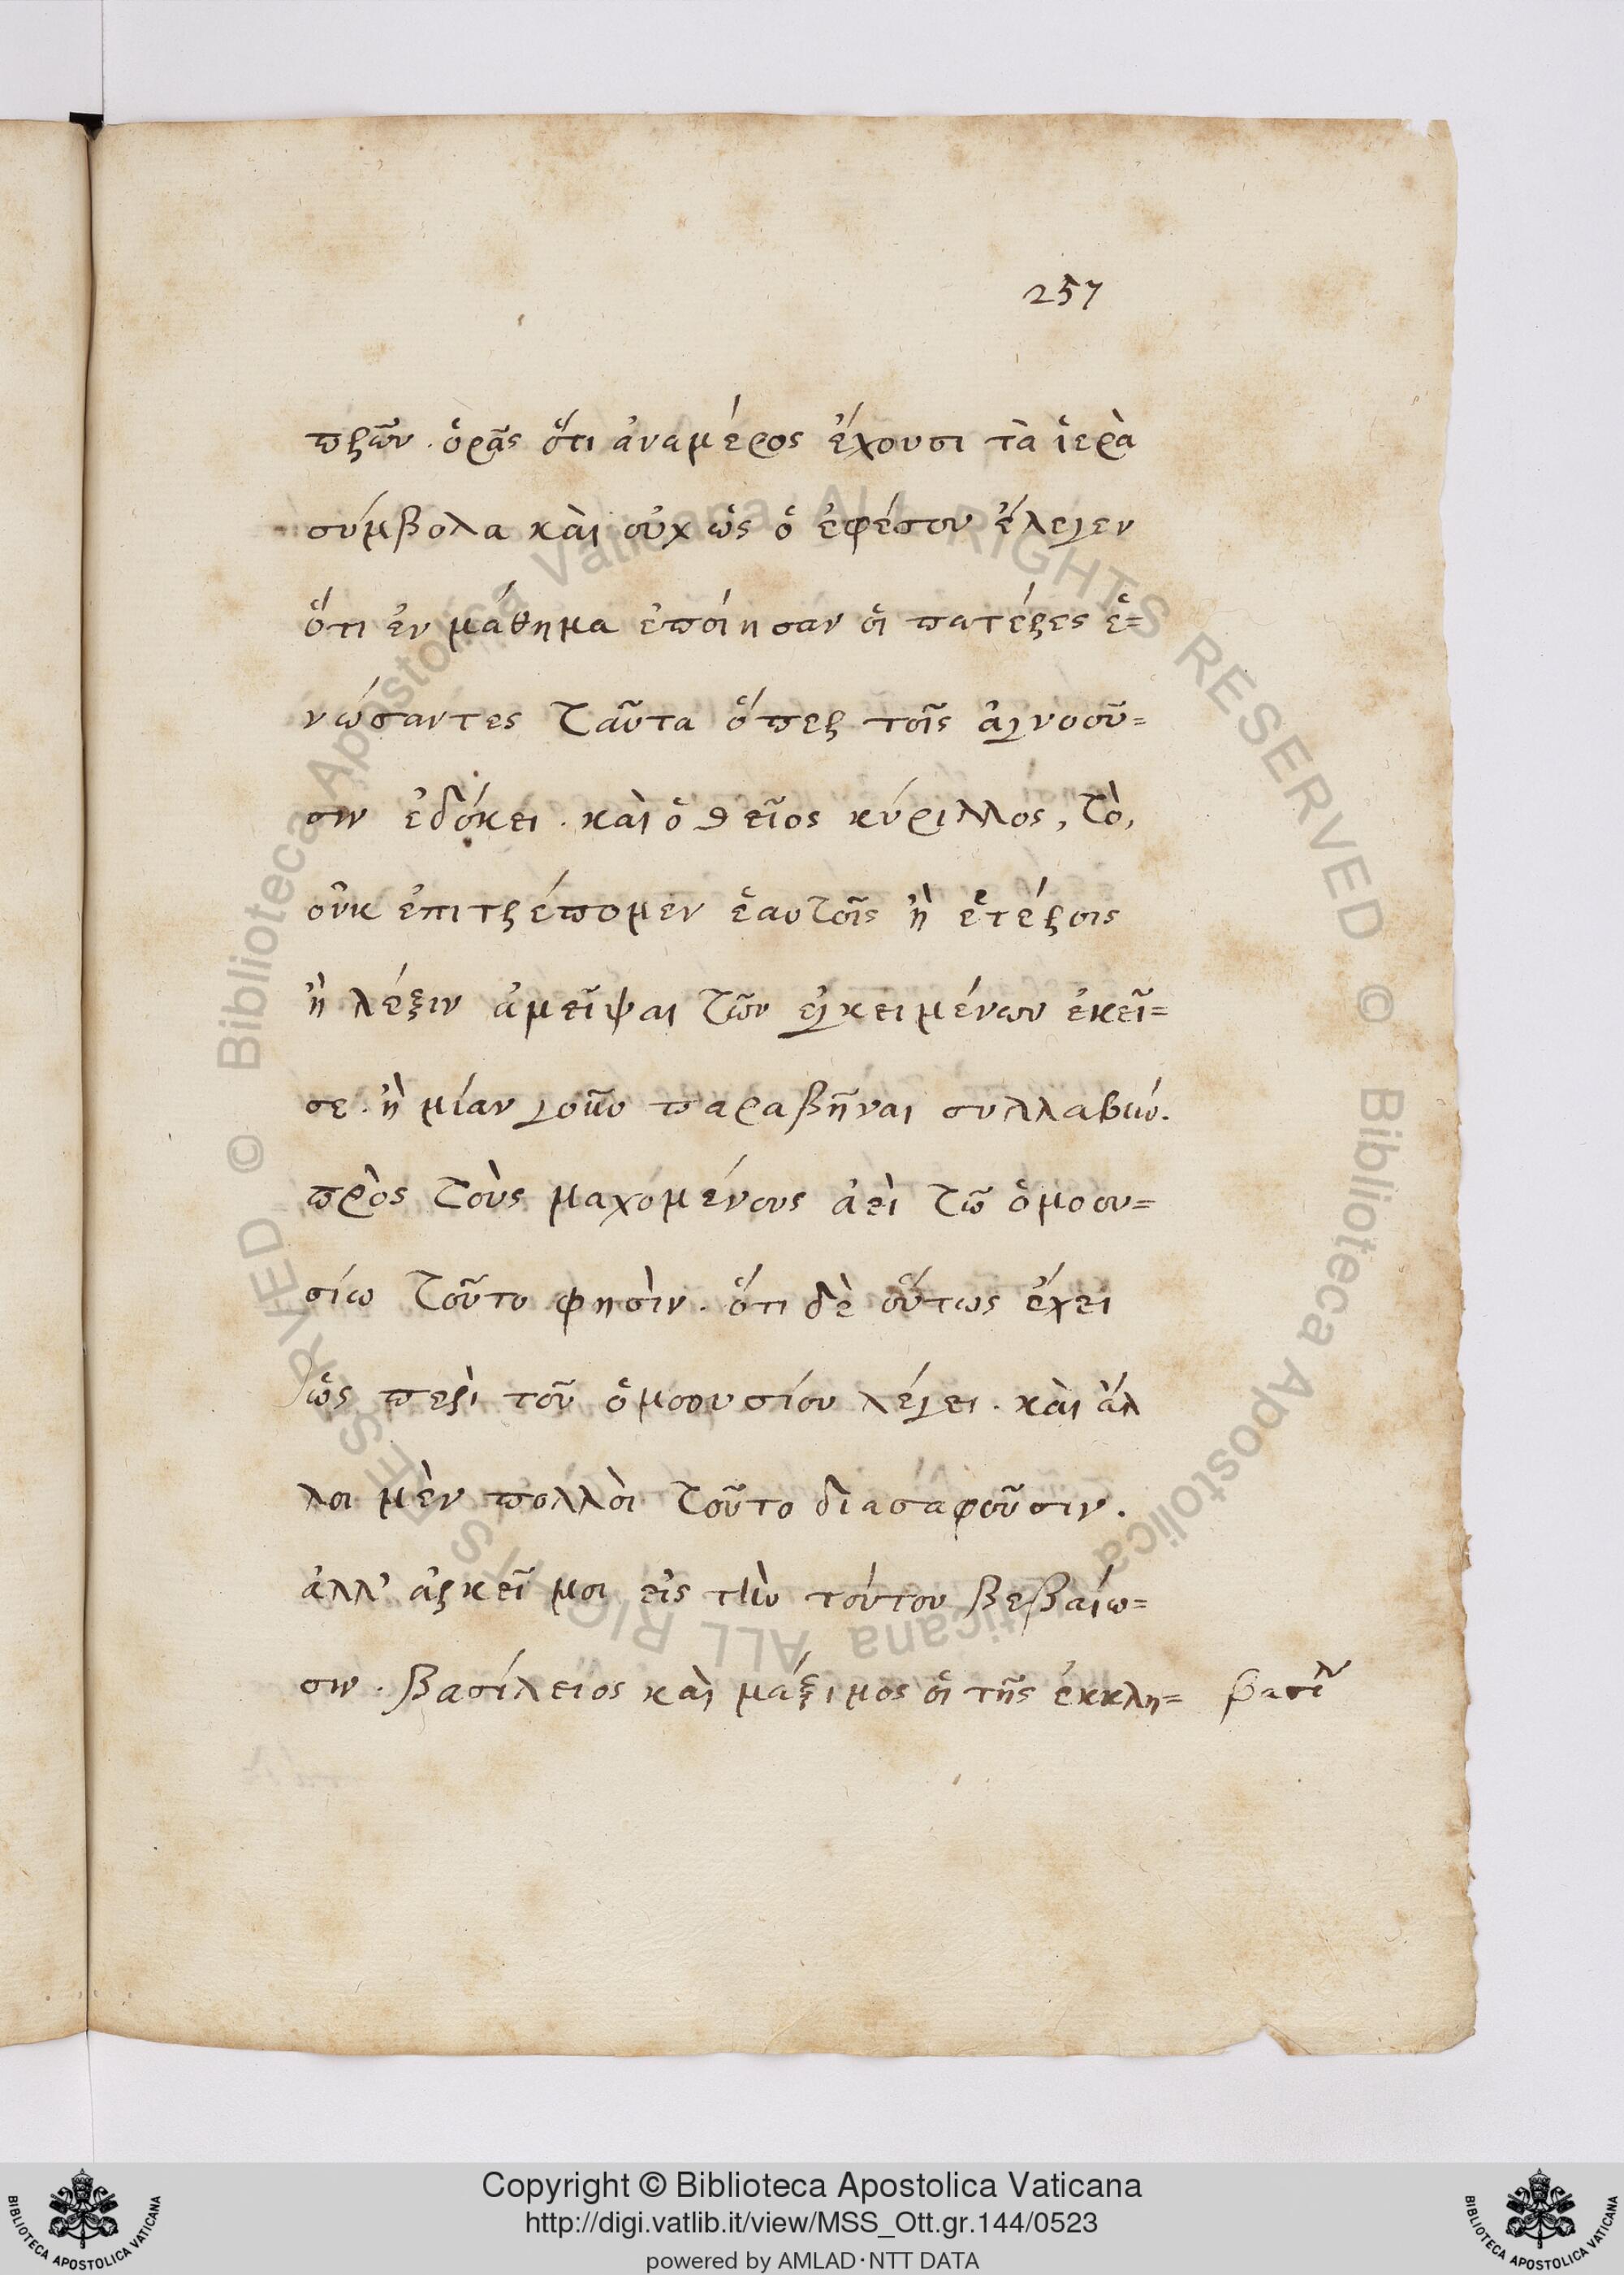 257
πρῶν. ὁρᾶς ὅτι ἀναμέρος ἔχουσι τὰ ἱερὰ
σύμβολα καὶ οὐχ ὡς ὁ ἐφέσου ἔλεγεν
ὅτι ἐν μάθημα ἐποίησαν οἱ πατέρες ἑ=
νώσαντες ταῦτα ὅπερ τοῖς ἀγνοοῦ=
σιν ἐδόκει. καὶ ὁ θεῖος κύριλλος, τὸ,
οὐκ ἐπιτρέπομεν ἑαυτοῖς ἢ ἑτέροις
ἢ λέξιν ἀμεῖψαι τῶν ἐγκειμένων ἐκεῖ=
σε. ἢ μίαν γοῦν παραβῆναι συλλαβήν.
πρὸς τοὺς μαχομένους ἀεὶ τῶ ὁμοου=
σίω τοῦτο φησὶν. ὅτι δὲ οὕτως ἔχει
ὡς περὶ τοῦ ὁμοουσίου λέγει. καὶ ἄλ
λοι μὲν πολλοὶ τοῦτο διασαφοῦσιν.
ἀλλ' ἀρκεῖ μοι εἰς τὴν τούτου βεβαίω=
σιν. βασίλειος καὶ μάξιμος οἱ τῆς ἐκκλη= βασι
Copyright © Biblioteca Apostolica Vaticana
http://digi.vatlib.it/view/MSS_Ott.gr.144/0523
powered by AMLAD·NTT DATA
BIBLIOTECA APOSTOLICA VATICANA
BIBLIOTECA APOSTOLICA VATICANA
© Biblioteca Apostolica Vaticana ALL RIGHTS RESERVED © Biblioteca Apostolica Vaticana ALL RIGHTS RESERVED